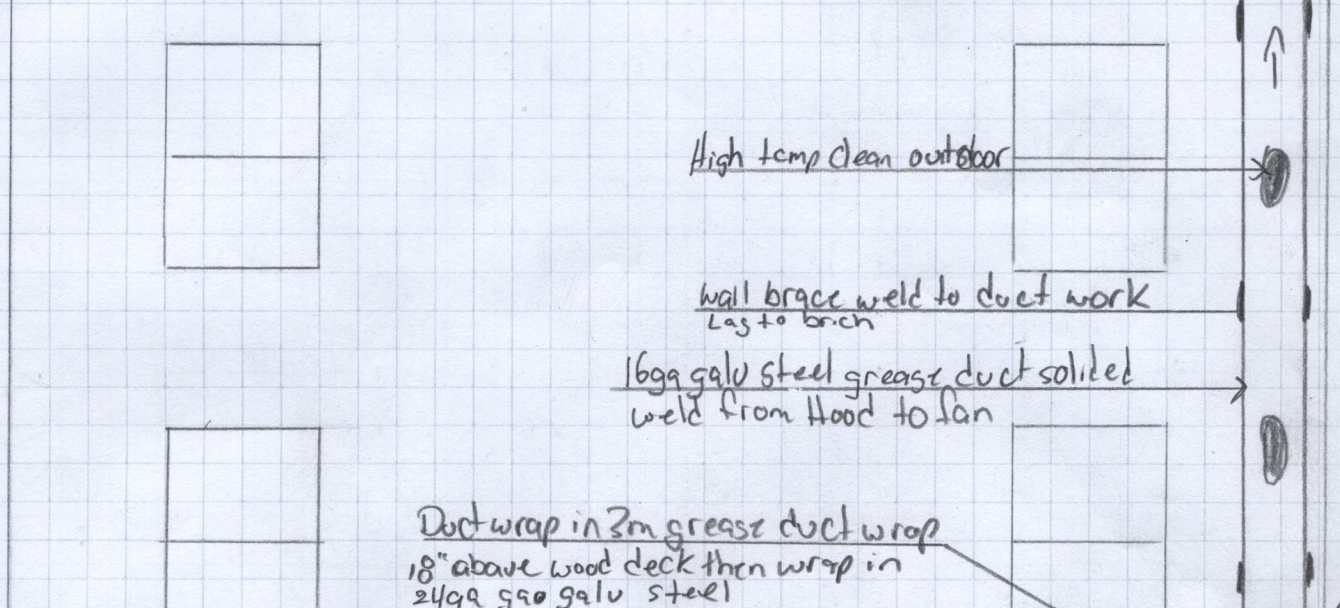 High temp clean outdoor
wall brace weld to duct work
Lag to brick
16ga galv steel grease duct solided
weld from Hood to fan
Duct wrap in 3m grease duct wrap
18" above wood deck then wrap in
24ga gao galv steel